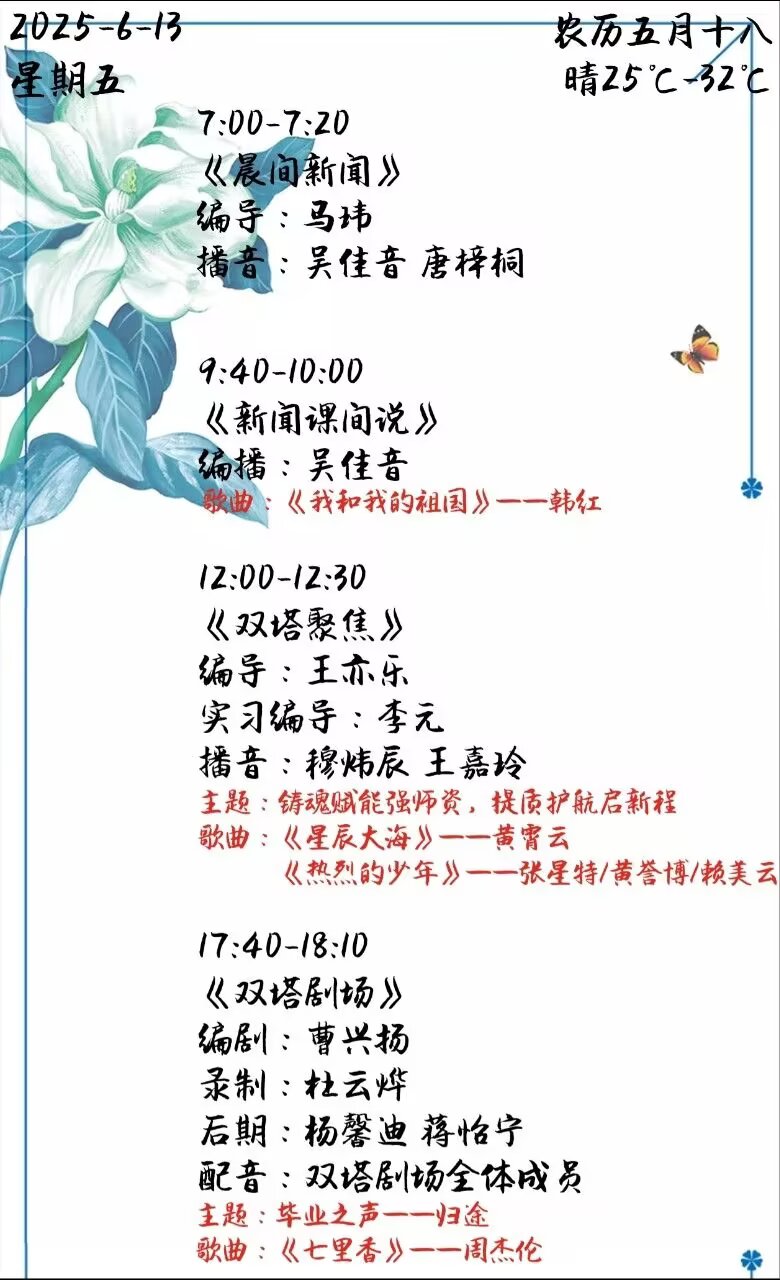 2025-6-13
农历五月十八
星期五
晴25℃-32℃
7:00-7:20
《晨间新闻》
编导：马玮
播音：吴佳音 唐梓桐
9:40-10:00
《新闻课间说》
编播：吴佳音
歌曲：《我和我的祖国》——韩红
12:00-12:30
《双塔聚焦》
编导：王亦乐
实习编导：李元
播音：穆炜辰 王嘉玲
主题：铸魂赋能强师资，提质护航启新程
歌曲：《星辰大海》——黄霄云
《热烈的少年》——张星特/黄誉博/赖美云
17:40-18:10
《双塔剧场》
编剧：曹兴扬
录制：杜云烨
后期：杨馨迪 蒋怡宁
配音：双塔剧场全体成员
主题：毕业之声——归途
歌曲：《七里香》——周杰伦